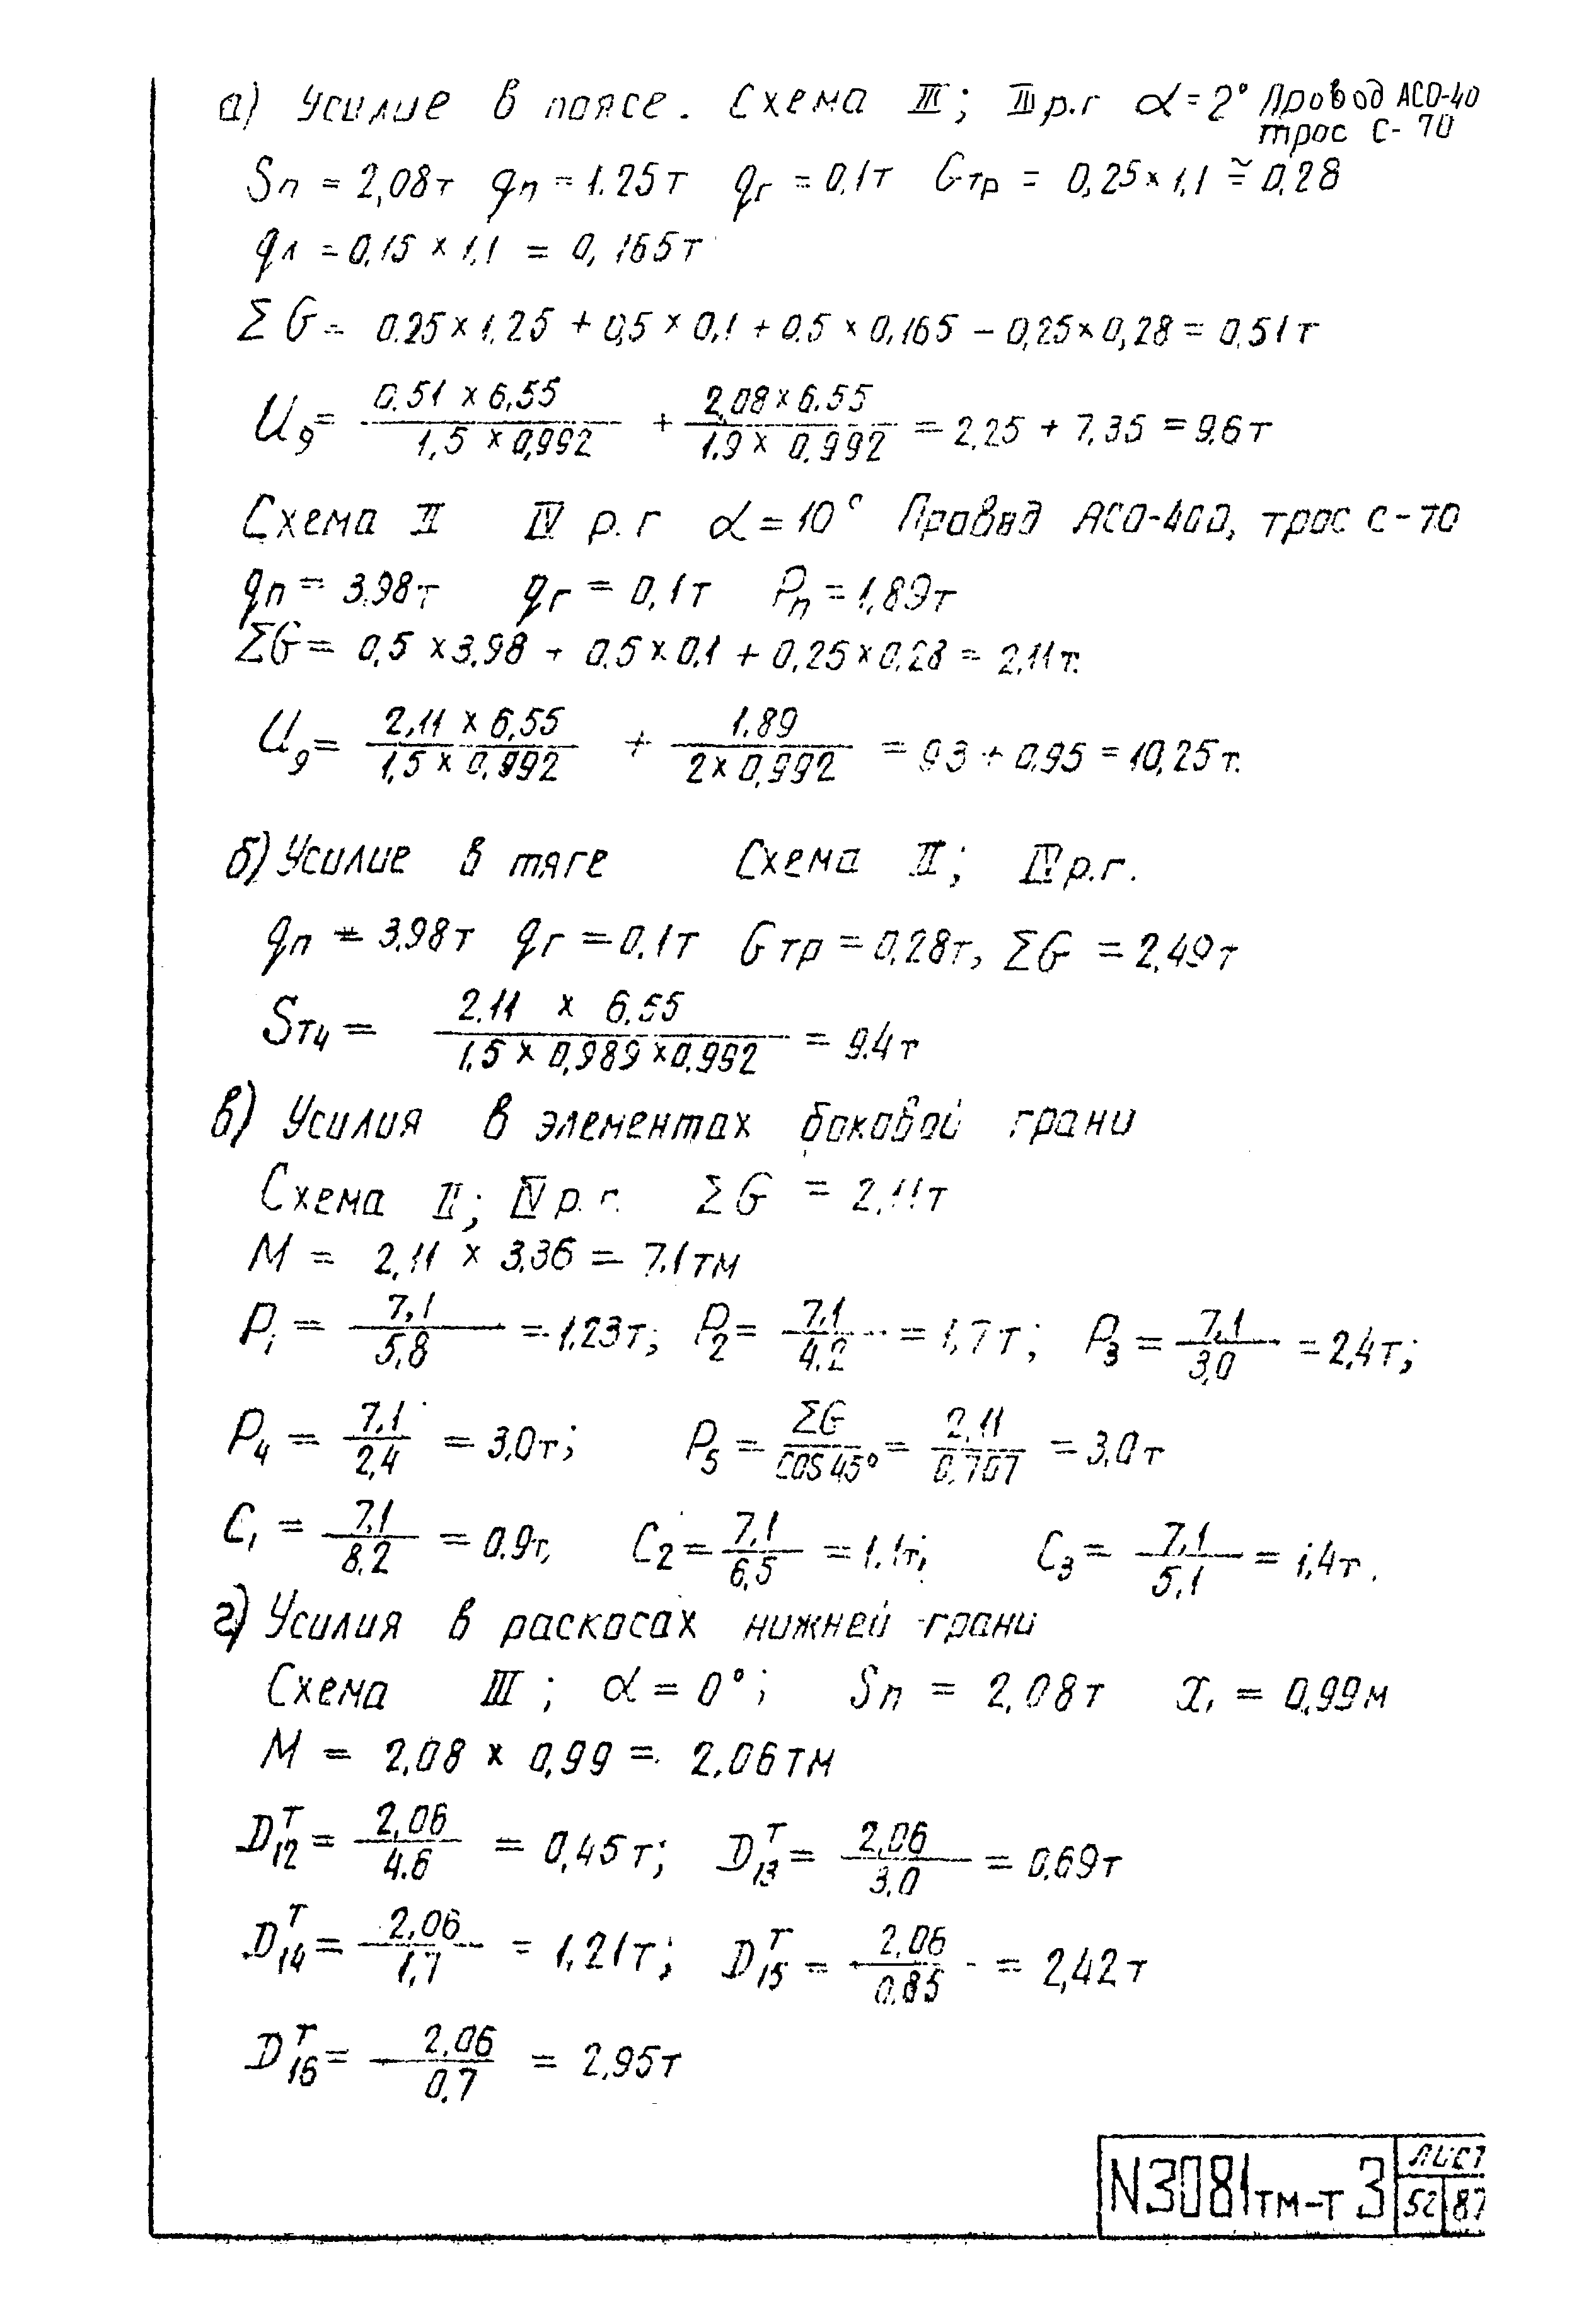 а) Усилие в поясе. Схема III; III р.г α=2° Провод АСО-40
трос С-70
Sп = 2,08т qп = 1.25т qг = 0,1т Gтр = 0,25×1,1 ≅ 0,28
qл = 0,15 × 1,1 = 0,165т
ΣG = 0.25×1,25 + 0,5×0,1 + 0.5×0,165 − 0,25×0,28 = 0,51т
U9 = 0.51 × 6,55 / 1,5 × 0,992 + 2,08×6.55 / 1.9 × 0.992 = 2,25 + 7,35 = 9.6т
Схема II IV р.г α=10° Провод АСО-400, трос С-70
qп = 3.98т qг = 0,1т Pп = 1,89т
ΣG = 0,5 × 3,98 + 0.5×0.1 + 0,25×0,28 = 2,11т.
U9 = 2,11 × 6,55 / 1,5 × 0,992 + 1.89 / 2×0,992 = 9.3 + 0.95 = 10,25т.
б) Усилие в тяге Схема II; IV р.г.
qп = 3,98т qг = 0.1т Gтр = 0,28т, ΣG = 2,49т
Sт4 = 2.11 × 6.55 / 1.5 × 0,989 × 0.992 = 9.4т
в) Усилия в элементах боковой грани
Схема II; IV р.г. ΣG = 2,11т
М = 2,11 × 3.36 = 7.1тм
P1 = 7,1 / 5,8 = 1.23т; P2 = 7.1 / 4.2 = 1,7т; P3 = 7.1 / 3,0 = 2,4т;
P4 = 7,1 / 2,4 = 3.0т; P5 = ΣG / cos 45° = 2,11 / 0,707 = 3,0т
C1 = 7,1 / 8,2 = 0.9т, C2 = 7,1 / 6,5 = 1.1т; C3 = 7,1 / 5,1 = 1,4т.
г) Усилия в раскосах нижней грани
Схема III; α=0°; Sп = 2,08т x1 = 0,99м
М = 2,08 × 0,99 = 2,06тм
D12ᵀ = 2,06 / 4.6 = 0,45т; D13ᵀ = 2,06 / 3,0 = 0.69т
D14ᵀ = 2,06 / 1,7 = 1,21т; D15ᵀ = 2,06 / 0.85 = 2,42т
D16ᵀ = 2,06 / 0.7 = 2,95т
N3081тм-т 3
ЛИСТ
52 87